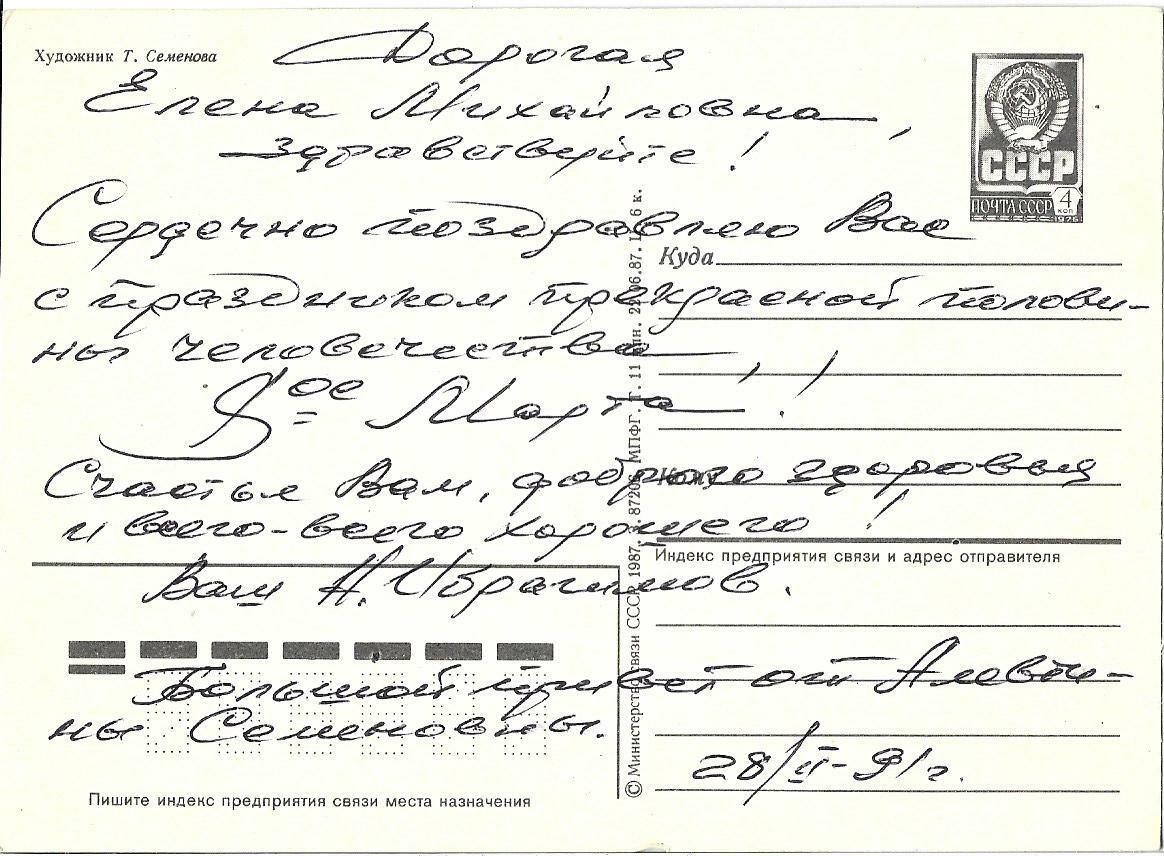 Художник Т. Семенова
Дорогая
Елена Михайловна,
здравствуйте!
СССР
ПОЧТА СССР 4 коп
Сердечно поздравляю Вас
Куда
с праздником прекрасной полови-
ны человечества,
8ое Марта!!
Счастья Вам, доброго здоровья
Кому
и всего-всего хорошего!
Индекс предприятия связи и адрес отправителя
Ваш А. Ибрагимов.
Большой привет от Алевти-
ны Семеновны.
28/II-91г.
Пишите индекс предприятия связи места назначения
© Министерство связи СССР, 1987. МПФГ. Т. 11 млн. 06.87. Ц. 6 к.